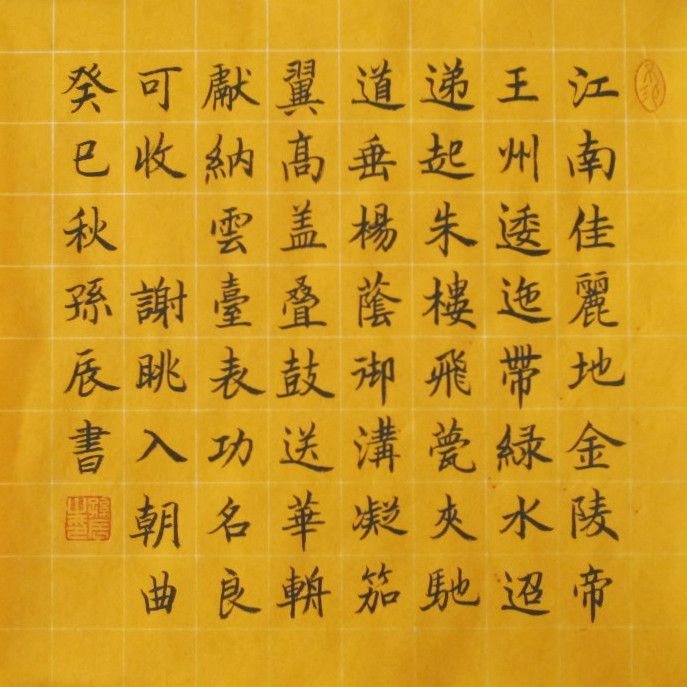 江南佳麗地金陵帝
王州逶迤帶緑水迢
递起朱樓飛甍夾馳
道垂楊蔭御溝凝笳
翼髙盖叠鼓送華輈
獻納雲臺表功名良
可收 謝眺入朝曲
癸巳秋孫辰書